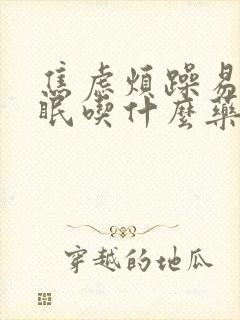 焦虑煩躁易
眠喫什麼藥
穿越的地瓜